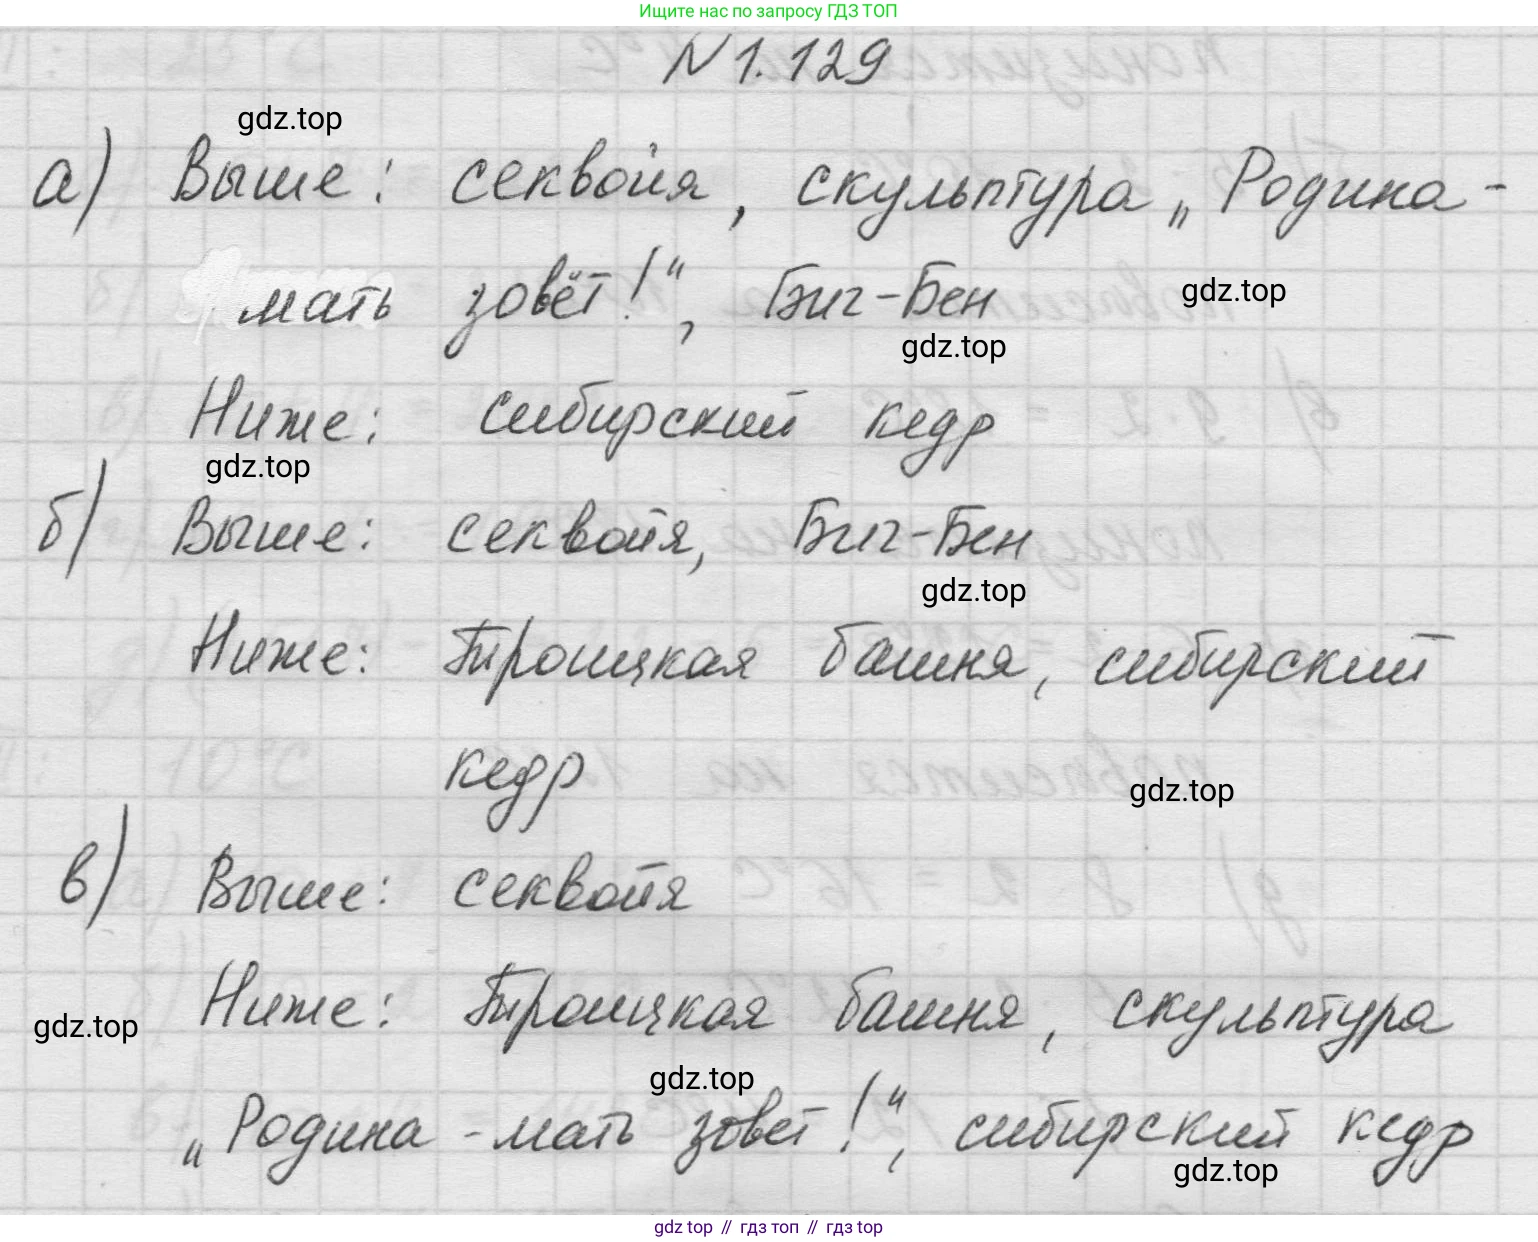 Ищите нас по запросу ГДЗ ТОП
N 1.129
gdz.top
а) Выше: секвойя, скульптура „Родина-
мать зовёт!“, Биг-Бен
gdz.top
gdz.top
Ниже: сибирский кедр
gdz.top
б) Выше: секвойя, Биг-Бен
gdz.top
Ниже: Троицкая башня, сибирский
кедр
gdz.top
в) Выше: секвойя
Ниже: Троицкая башня, скульптура
gdz.top
gdz.top
„Родина-мать зовет!“, сибирский кедр
gdz.top
gdz top // гдз топ // гдз top